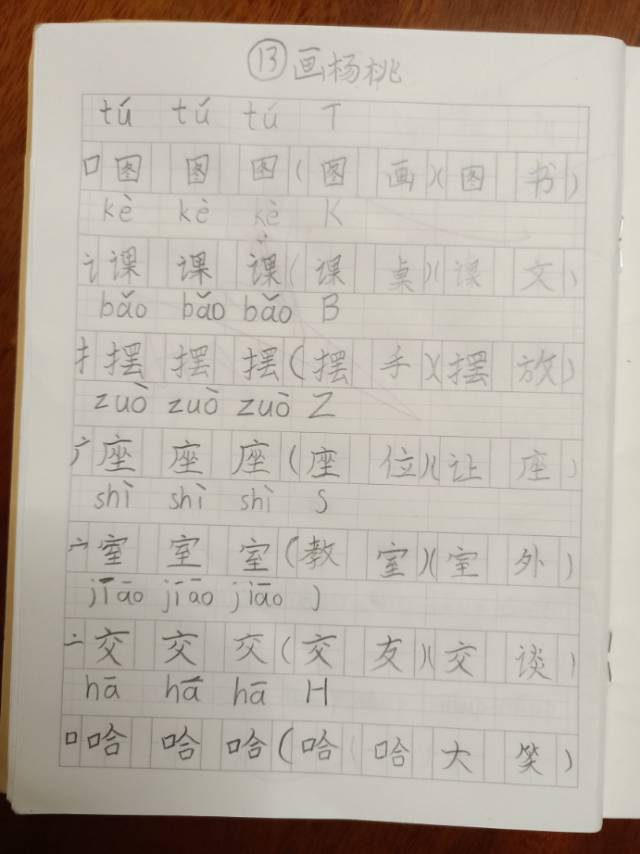 ⑬画杨桃
tú tú tú T
口图 图 图(图画)(图书)
kè kè kè K
讠课 课 课(课桌)(课文)
bǎo bǎo bǎo B
扌摆 摆 摆(摆手)(摆放)
zuò zuò zuò Z
广座 座 座(座位)(让座)
shì shì shì S
宀室 室 室(教室)(室外)
jiāo jiāo jiāo J
亠交 交 交(交友)(交谈)
hā hā hā H
口哈 哈 哈(哈哈大笑)